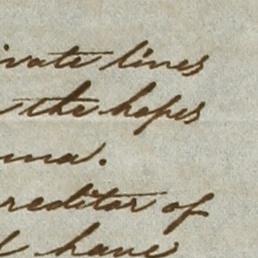 ivate lines
the hopes
reditor of
have